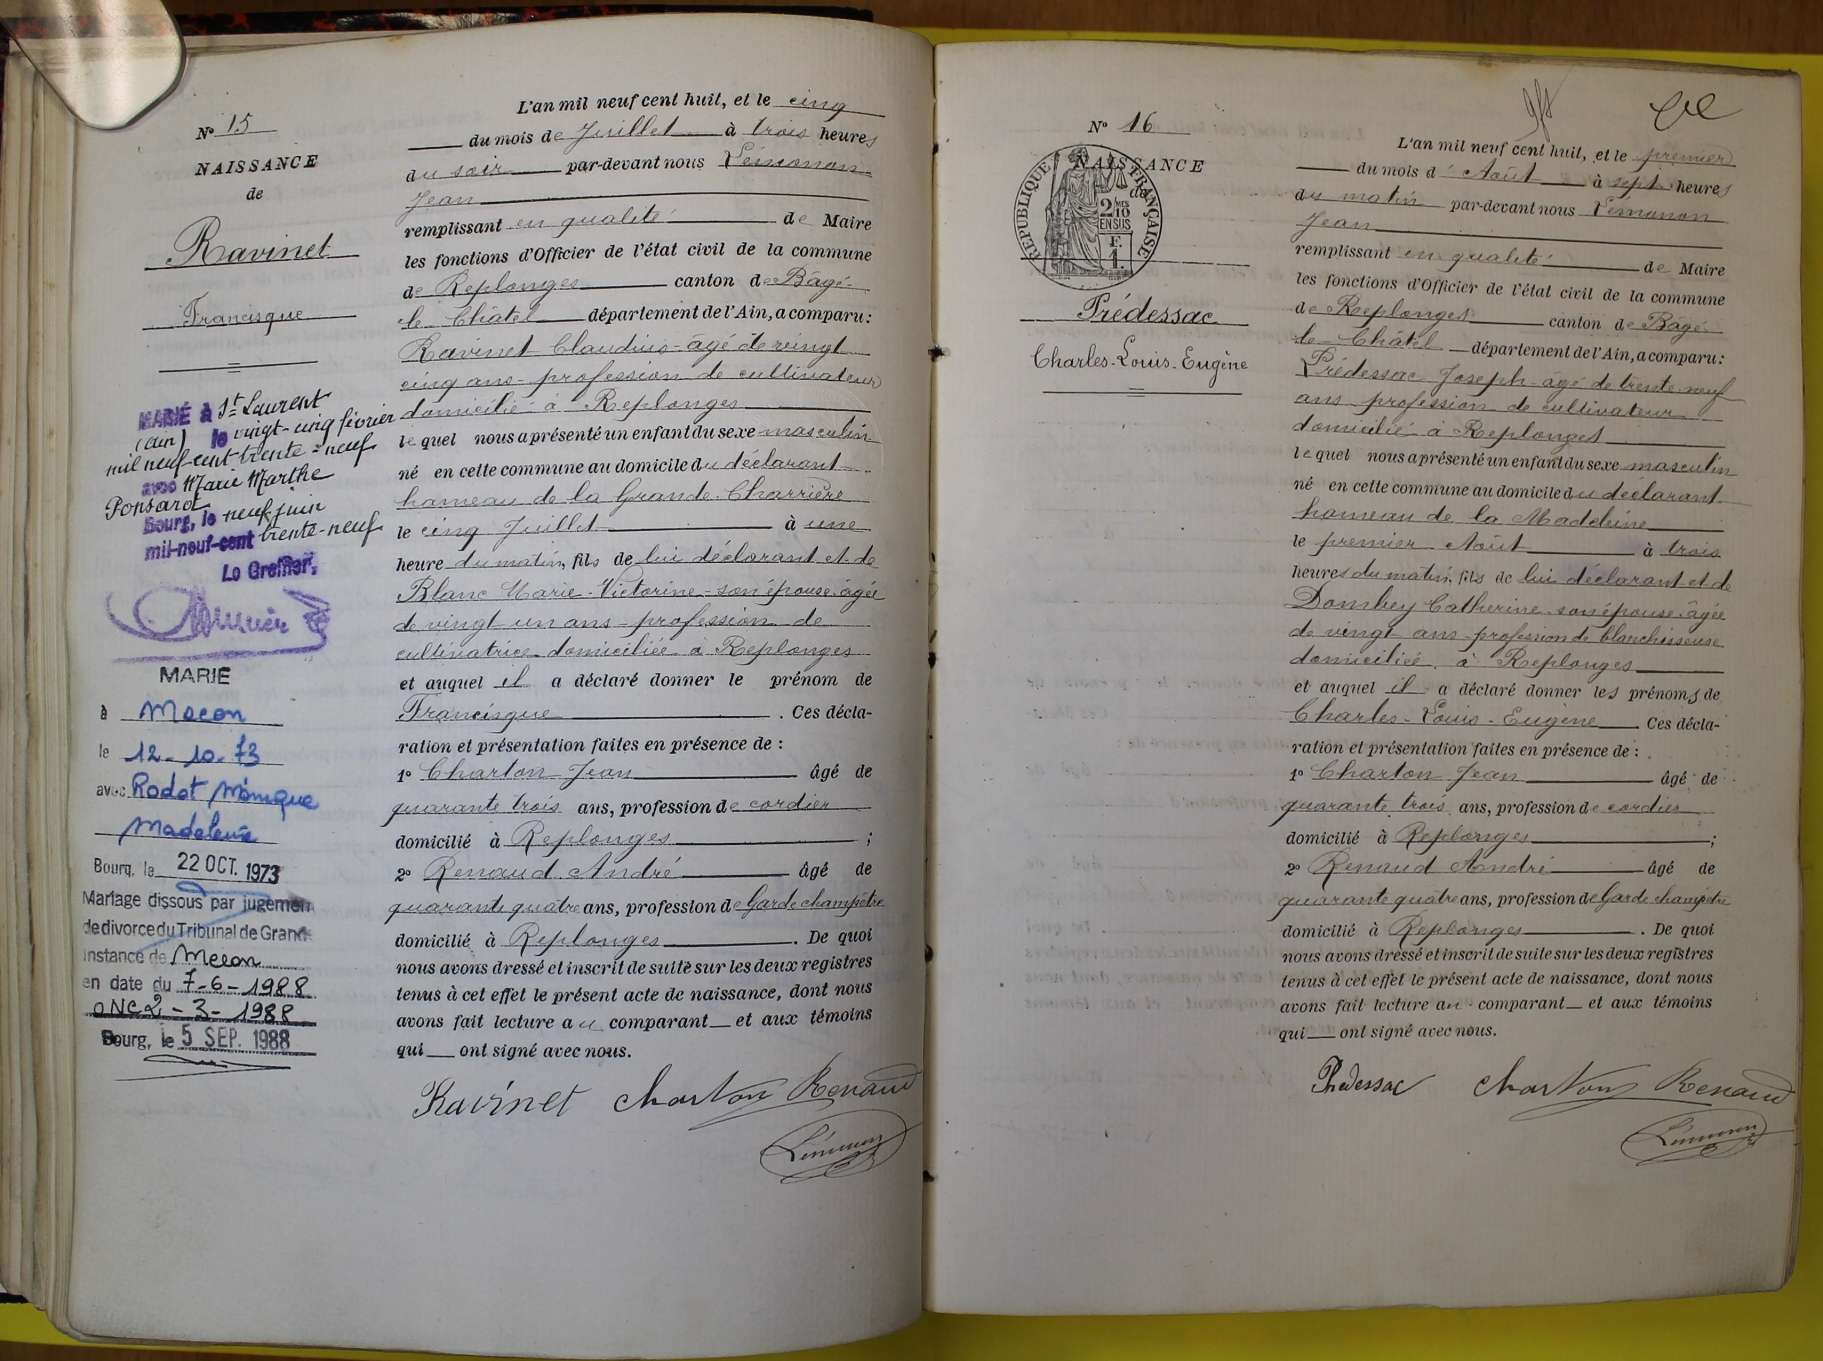 N° 15
NAISSANCE
de
Ravinet
Francisque
MARIÉ à St Laurent
(Ain) le vingt-cinq février
mil neuf cent trente-neuf
avec Marie Marthe
Ponsard
Bourg, le neuf juin
mil-neuf-cent trente-neuf
Le Greffier,
MARIE
à Macon
le 12-10-73
avec Rodet Monique
Madeleine
Bourg, le 22 OCT. 1973
Mariage dissous par jugement
de divorce du Tribunal de Grande
Instance de Macon
en date du 7-6-1988
ONC 2-3-1988
Bourg, le 5 SEP. 1988
L'an mil neuf cent huit, et le cinq
du mois de Juillet à trois heures
du soir par-devant nous Lémonon
Jean
remplissant en qualité de Maire
les fonctions d'Officier de l'état civil de la commune
de Replonges canton de Bâgé-
le Châtel département de l'Ain, a comparu:
Ravinet Claudius-âgé de vingt
cinq ans-profession de cultivateur
domicilié à Replonges
lequel nous a présenté un enfant du sexe masculin
né en cette commune au domicile du déclarant
hameau de la Grande Charrière
le cinq Juillet à une
heure du matin, fils de lui déclarant et de
Blanc Marie-Victorine-son épouse-âgée
de vingt un ans-profession de
cultivatrice domiciliée à Replonges
et auquel il a déclaré donner le prénom de
Francisque. Ces décla-
ration et présentation faites en présence de :
1° Charton Jean âgé de
quarante trois ans, profession de cordier
domicilié à Replonges ;
2° Renaud André âgé de
quarante quatre ans, profession de Garde champêtre
domicilié à Replonges. De quoi
nous avons dressé et inscrit de suite sur les deux registres
tenus à cet effet le présent acte de naissance, dont nous
avons fait lecture au comparant et aux témoins
qui ont signé avec nous.
Ravinet Charton Renaud
Lémonon
N° 16
NAISSANCE
de
RÉPUBLIQUE FRANÇAISE
2/10 MES
EN SUS
F.
1.
Prédessac
Charles-Louis-Eugène
L'an mil neuf cent huit, et le premier
du mois d'Août à sept heures
du matin par-devant nous Lémonon
Jean
remplissant en qualité de Maire
les fonctions d'Officier de l'état civil de la commune
de Replonges canton de Bâgé
le-Châtel département de l'Ain, a comparu:
Prédessac Joseph-âgé de trente neuf
ans profession de cultivateur
domicilié à Replonges
lequel nous a présenté un enfant du sexe masculin
né en cette commune au domicile du déclarant
hameau de la Madeleine
le premier Août à trois
heures du matin, fils de lui déclarant et de
Dombey Catherine son épouse-âgée
de vingt ans-profession de blanchisseuse
domiciliée à Replonges
et auquel il a déclaré donner les prénoms de
Charles-Louis-Eugène Ces décla-
ration et présentation faites en présence de :
1° Charton Jean âgé de
quarante trois ans, profession de cordier
domicilié à Replonges ;
2° Renaud André âgé de
quarante quatre ans, profession de Garde champêtre
domicilié à Replonges. De quoi
nous avons dressé et inscrit de suite sur les deux registres
tenus à cet effet le présent acte de naissance, dont nous
avons fait lecture au comparant et aux témoins
qui ont signé avec nous.
Prédessac Charton Renaud
Lémonon